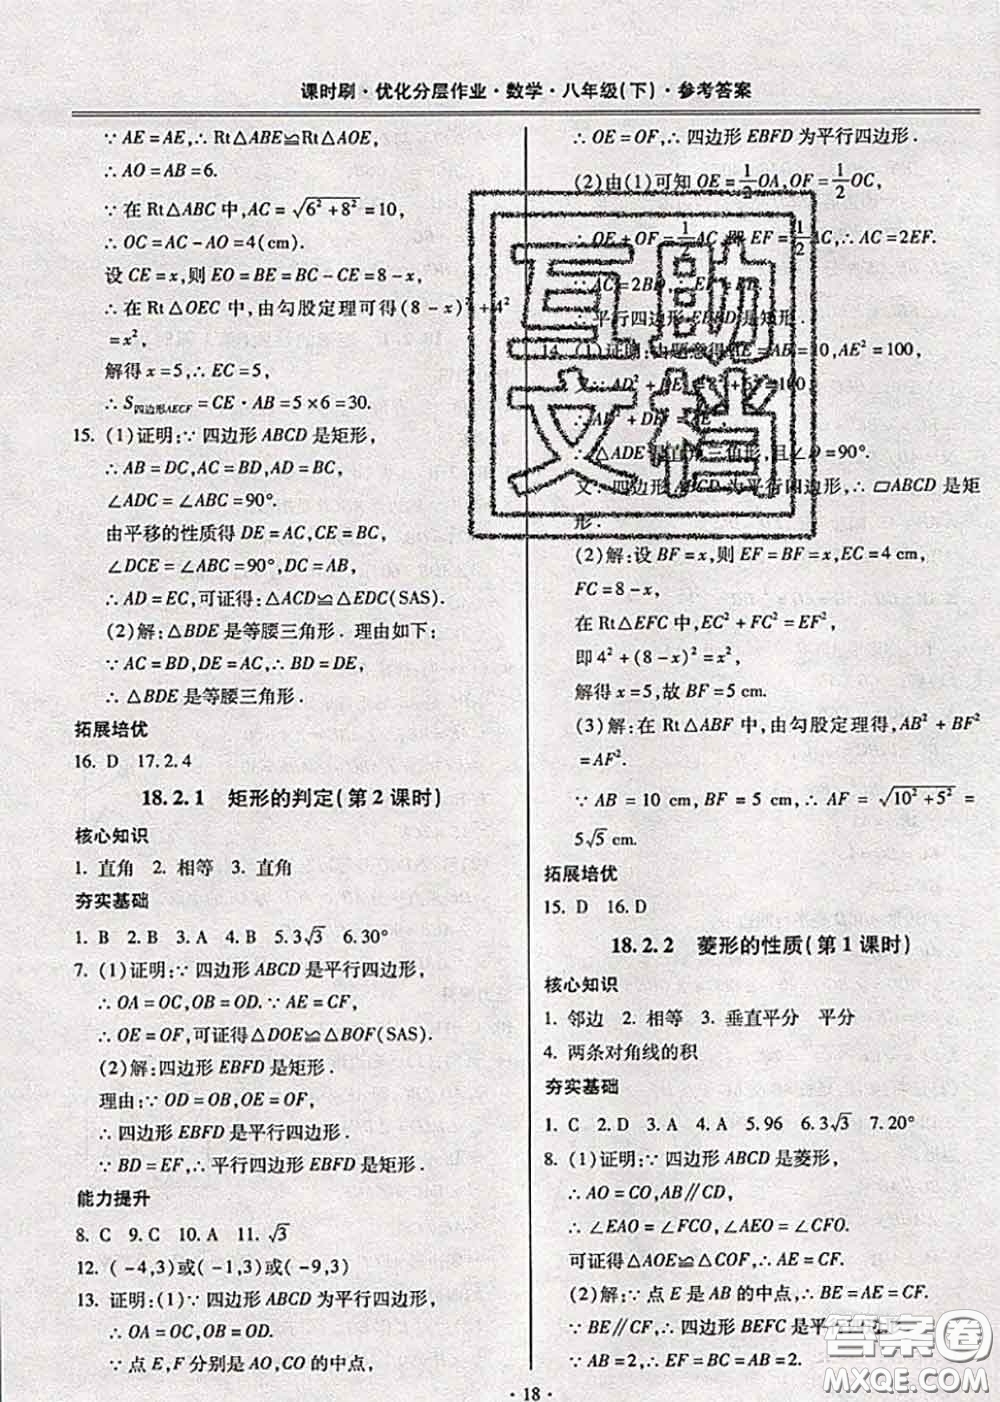 课时刷·优化分层作业·数学·八年级(下)·参考答案
∵AE=AE,∴Rt△ABE≌Rt△AOE,
∴AO=AB=6.
∵在Rt△ABC中,AC=√(6²+8²)=10,
∴OC=AC-AO=4(cm).
设CE=x,则EO=BE=BC-CE=8-x,
∴在Rt△OEC中,由勾股定理可得(8-x)²+4²
=x²,
解得x=5,∴EC=5,
∴S四边形AECF=CE·AB=5×6=30.
15. (1)证明:∵四边形ABCD是矩形,
∴AB=DC,AC=BD,AD=BC,
∠ADC=∠ABC=90°.
由平移的性质得DE=AC,CE=BC,
∠DCE=∠ABC=90°,DC=AB,
∴AD=EC,可证得:△ACD≌△EDC(SAS).
(2)解:△BDE是等腰三角形.理由如下:
∵AC=BD,DE=AC,∴BD=DE,
∴△BDE是等腰三角形.
拓展培优
16. D 17. 2.4
18.2.1 矩形的判定(第2课时)
核心知识
1. 直角 2. 相等 3. 直角
夯实基础
1. B 2. B 3. A 4. B 5. 3√3 6. 30°
7. (1)证明:∵四边形ABCD是平行四边形,
∴OA=OC,OB=OD.∵AE=CF,
∴OE=OF,可证得△DOE≌△BOF(SAS).
(2)解:四边形EBFD是矩形.
理由:∵OD=OB,OE=OF,
∴四边形EBFD是平行四边形.
∵BD=EF,∴平行四边形EBFD是矩形.
能力提升
8. C 9. C 10. A 11. √3
12. (-4,3)或(-1,3)或(-9,3)
13. 证明:(1)∵四边形ABCD为平行四边形,
∴OA=OC,OB=OD.
∵点E,F分别是AO,CO的中点,
∴OE=OF,∴四边形EBFD为平行四边形.
(2)由(1)可知OE=1/2OA,OF=1/2OC,
∴OE+OF=1/2AC,即EF=1/2AC,∴AC=2EF.
∵AC=2BD,
∴平行四边形EBFD是矩形.
14. (1)证明:由题意得AE=AB=10,AE²=100,
又∵AD²+DE²=8²+6²=100,
∴AD²+DE²=AE².
∴△ADE是直角三角形,且∠D=90°.
又∵四边形ABCD为平行四边形,∴▱ABCD是矩
形.
(2)解:设BF=x,则EF=BF=x,EC=4 cm,
FC=8-x,
在Rt△EFC中,EC²+FC²=EF²,
即4²+(8-x)²=x²,
解得x=5,故BF=5 cm.
(3)解:在Rt△ABF中,由勾股定理得,AB²+BF²
=AF²,
∵AB=10 cm,BF=5 cm,∴AF=√(10²+5²)=
5√5 cm.
拓展培优
15. D 16. D
18.2.2 菱形的性质(第1课时)
核心知识
1. 邻边 2. 相等 3. 垂直平分 平分
4. 两条对角线的积
夯实基础
1. C 2. D 3. A 4. A 5. 96 6. 3√3 7. 20°
8. (1)证明:∵四边形ABCD是菱形,
∴AO=CO,AB∥CD,
∴∠EAO=∠FCO,∠AEO=∠CFO.
可证得△AOE≌△COF,∴AE=CF.
(2)解:∵点E是AB的中点,∴BE=AE=CF.
∵BE∥CF,∴四边形BEFC是平行四边形,
∵AB=2,∴EF=BC=AB=2.
·18·
互助
文档
答案圈
MXQE.COM